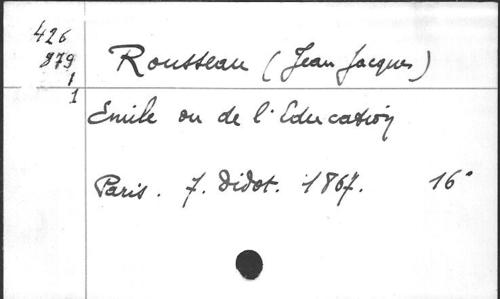 426
879
1
1
Rousseau (Jean Jacques)
Emile ou de l'Education
Paris. F. Didot. 1867. 16°